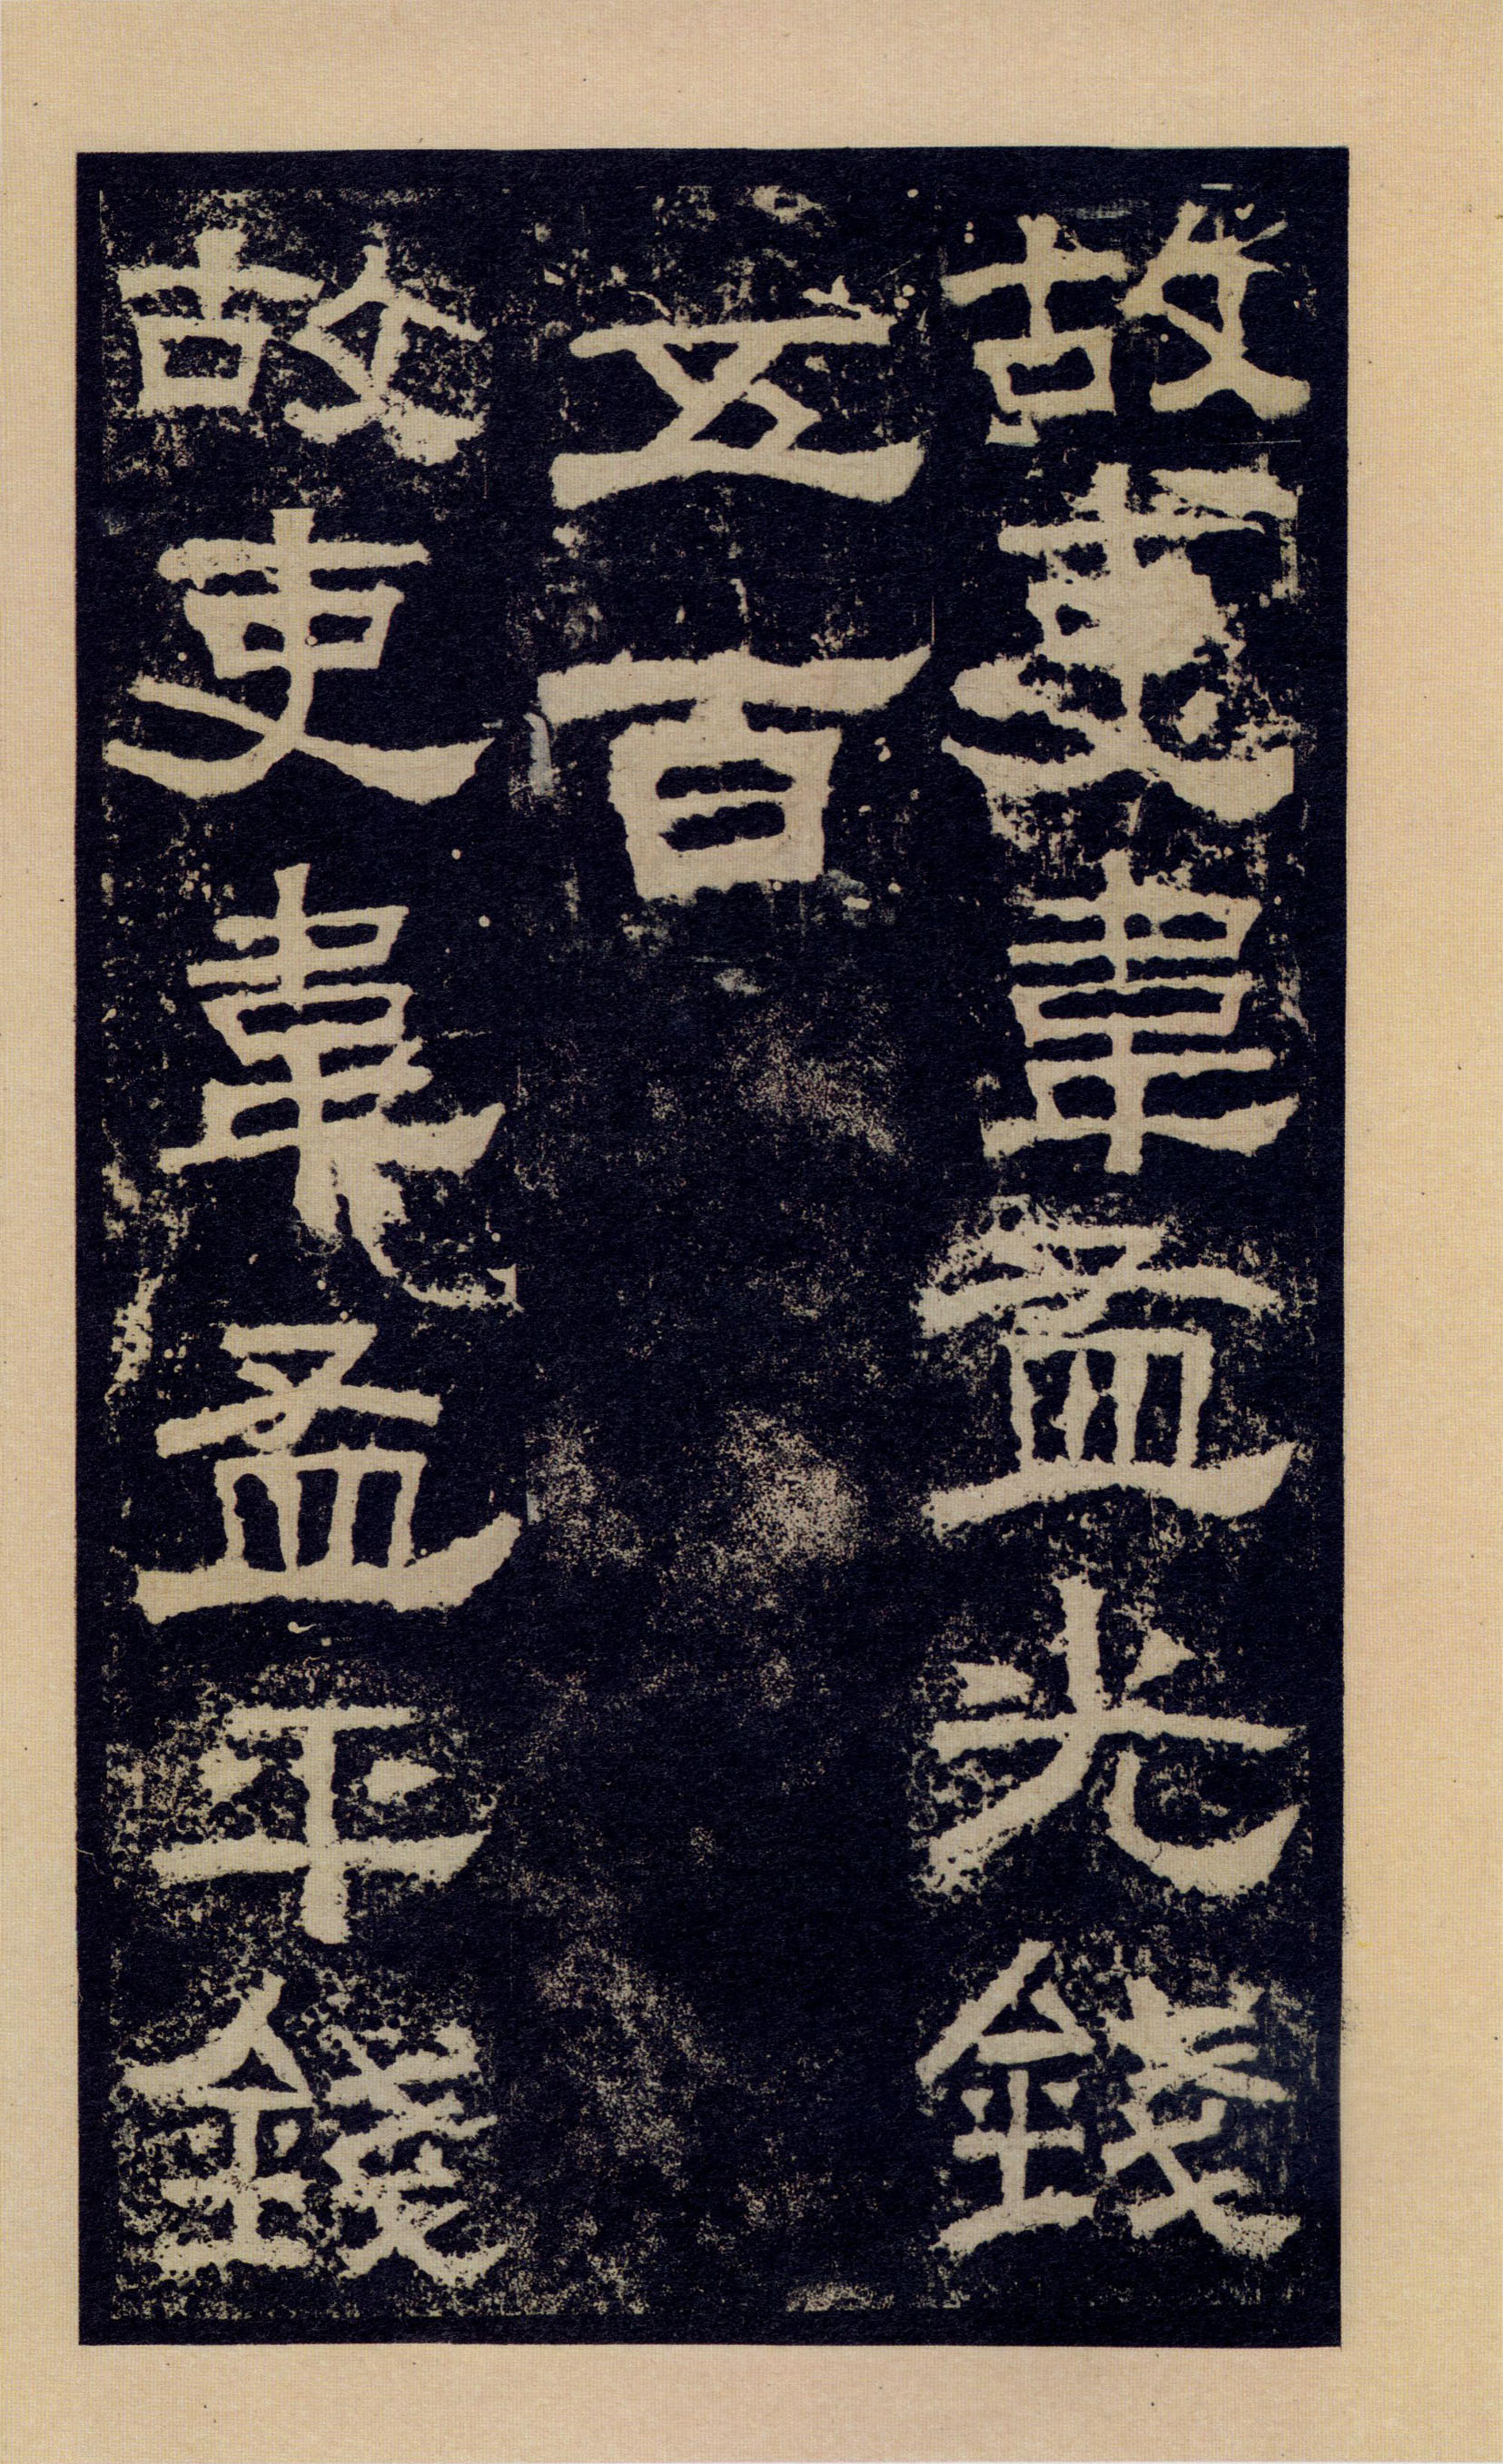 故吏韋孟光錢
五百
故吏韋孟平錢